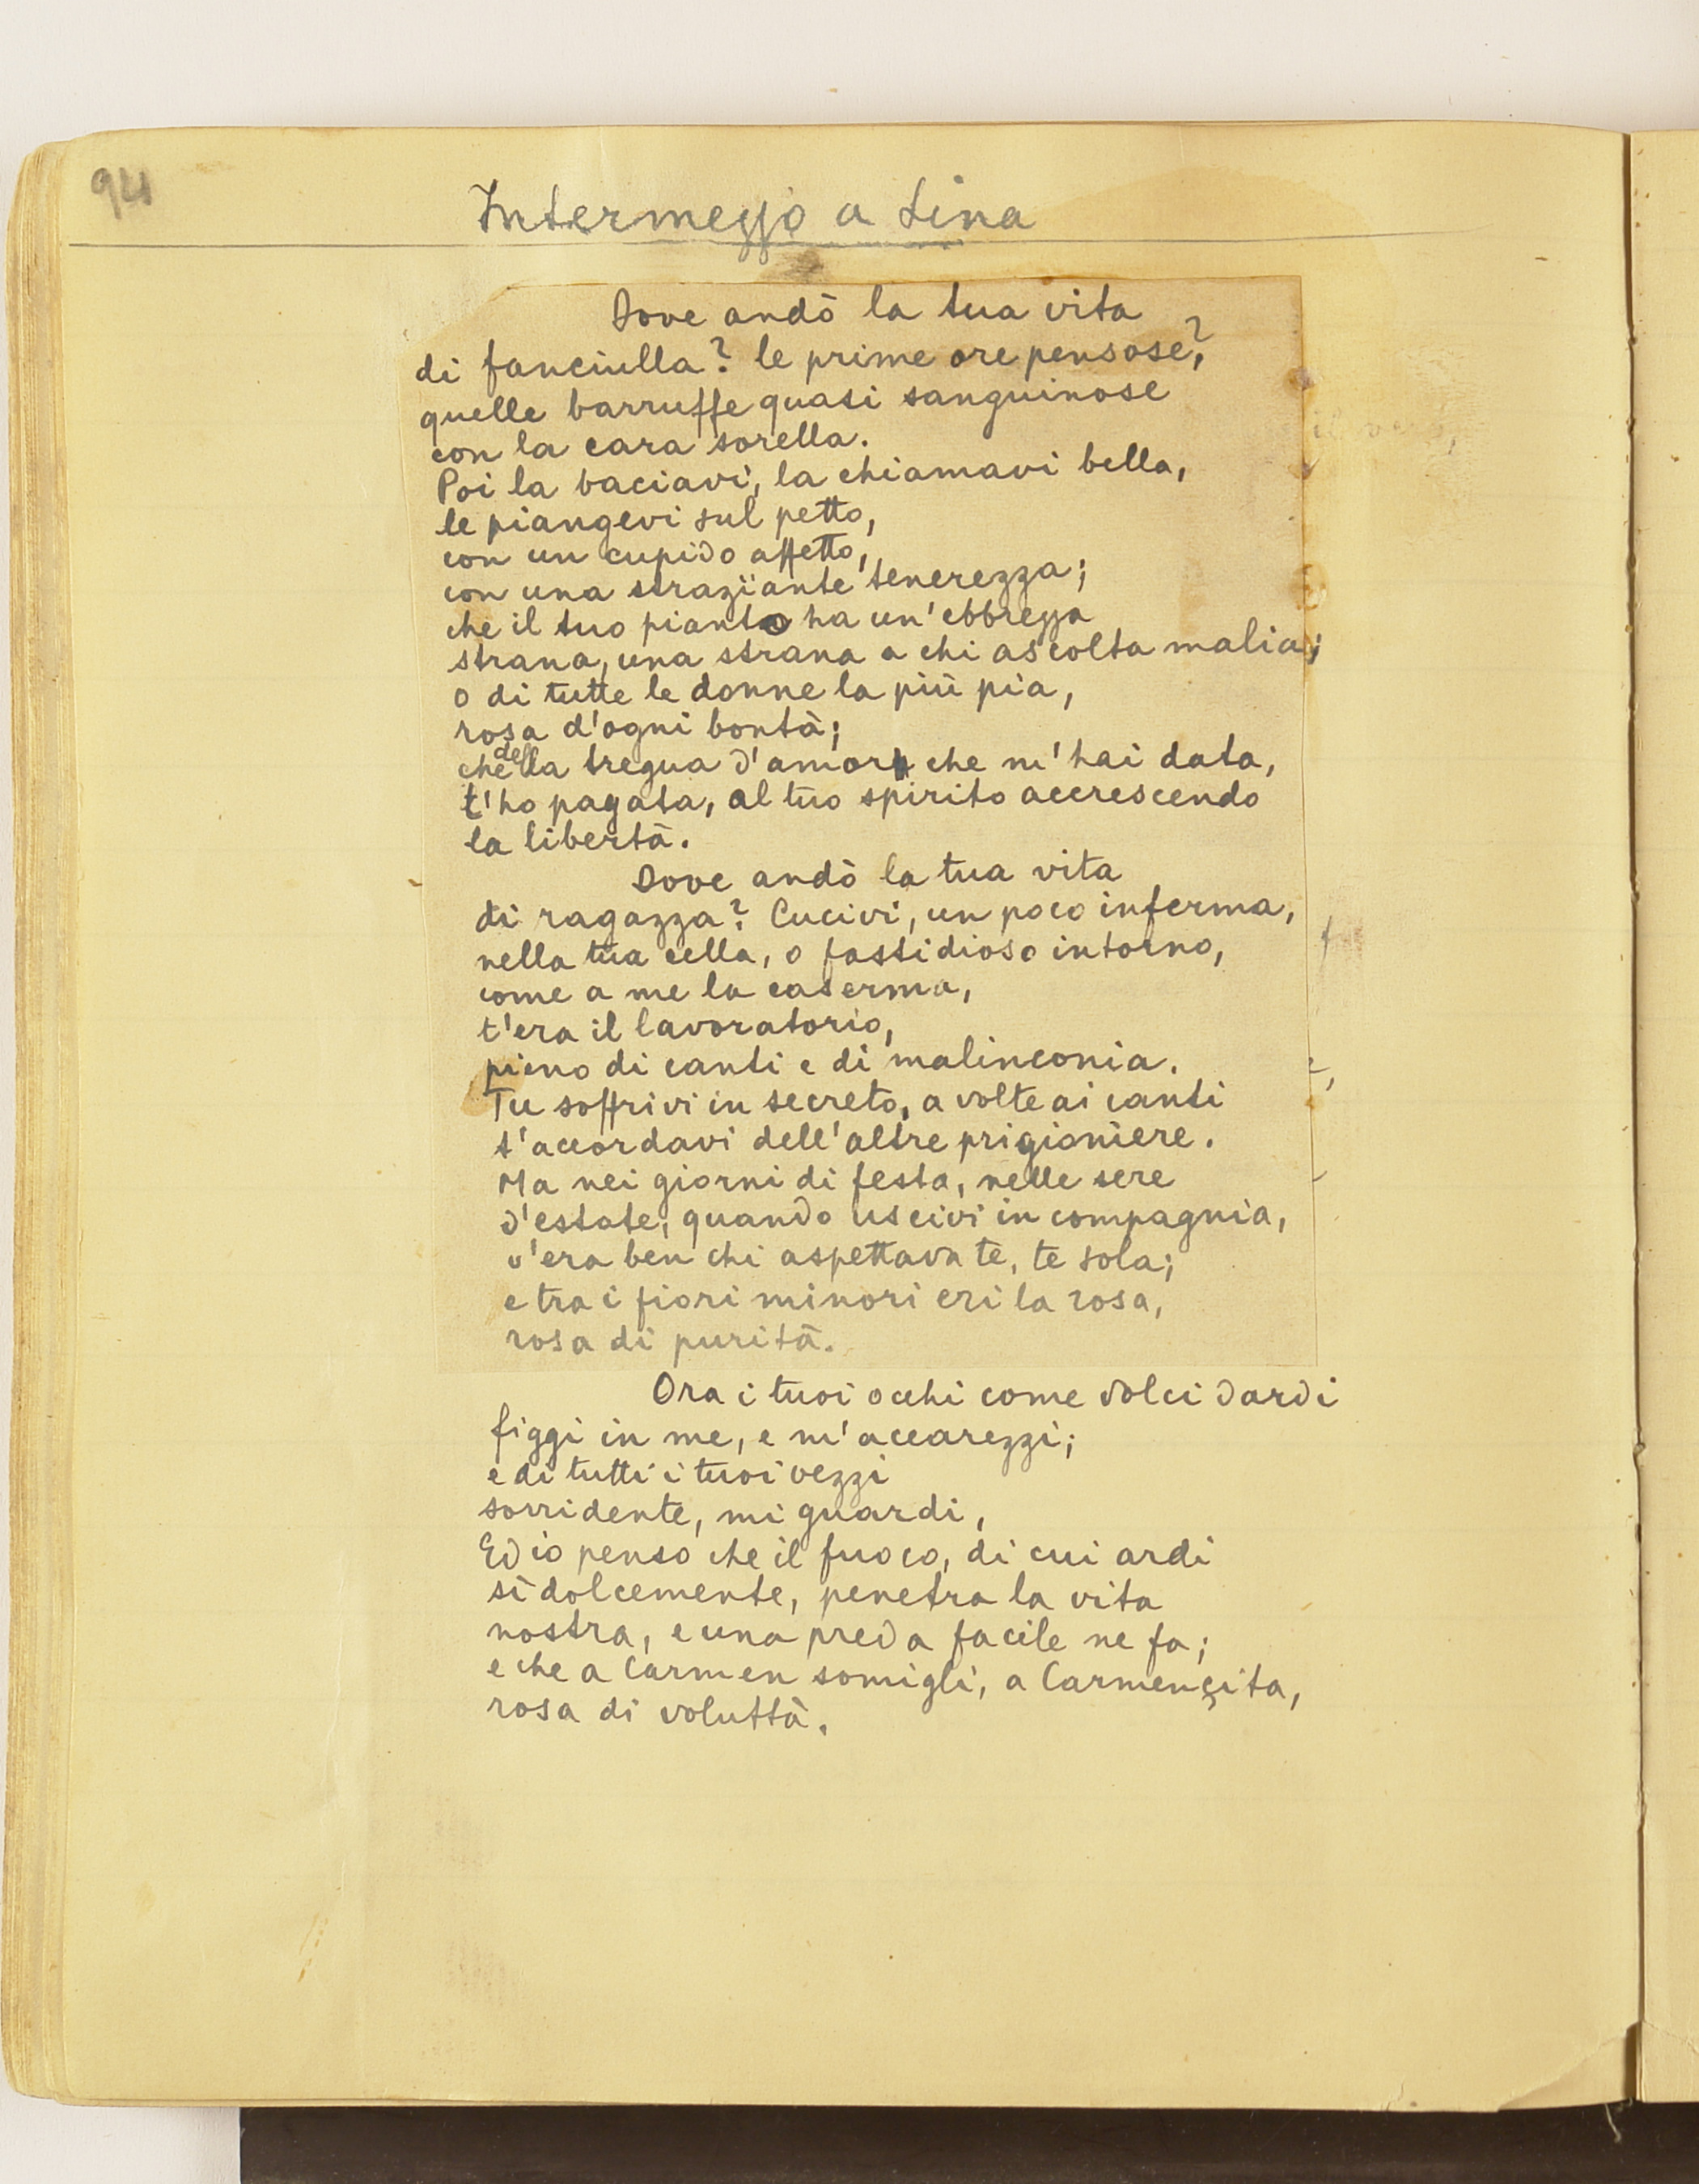 94
Intermezzo a Lina
Dove andò la tua vita
di fanciulla? le prime ore pensose?
quelle barruffe quasi sanguinose
con la cara sorella.
Poi la baciavi, la chiamavi bella,
le piangevi sul petto,
con un cupido affetto,
con una strazïante tenerezza;
che il tuo pianto ha un'ebbrezza
strana, una strana a chi ascolta malia;
o di tutte le donne la più pia,
rosa d'ogni bontà;
che della tregua d'amor che m'hai data,
t'ho pagata, al tuo spirito accrescendo
la libertà.
Dove andò la tua vita
di ragazza? Cucivi, un poco inferma,
nella tua cella, o fastidioso intorno,
come a me la caserma,
t'era il lavoratorio,
pieno di canti e di malinconia.
Tu soffrivi in secreto, a volte ai canti
t'accordavi dell'altre prigioniere.
Ma nei giorni di festa, nelle sere
d'estate, quando uscivi in compagnia,
v'era ben chi aspettava te, te sola;
e tra i fiori minori eri la rosa,
rosa di purità.
Ora i tuoi occhi come dolci dardi
figgi in me, e m'accarezzi;
e di tutti i tuoi vezzi
sorridente, mi guardi,
Ed io penso che il fuoco, di cui ardi
sì dolcemente, penetra la vita
nostra, e una preda facile ne fa;
e che a Carmen somigli, a Carmençita,
rosa di voluttà.